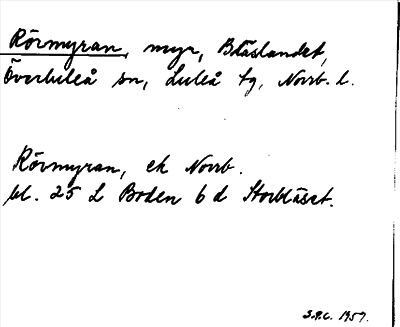 Rörmyran, myr, Blåslandet,
Överluleå sn, Luleå tg, Norrb. l.
Rörmyran, ek Norrb.
bl. 25 L Boden 6 d Storblåset.
S.P.C. 1957.